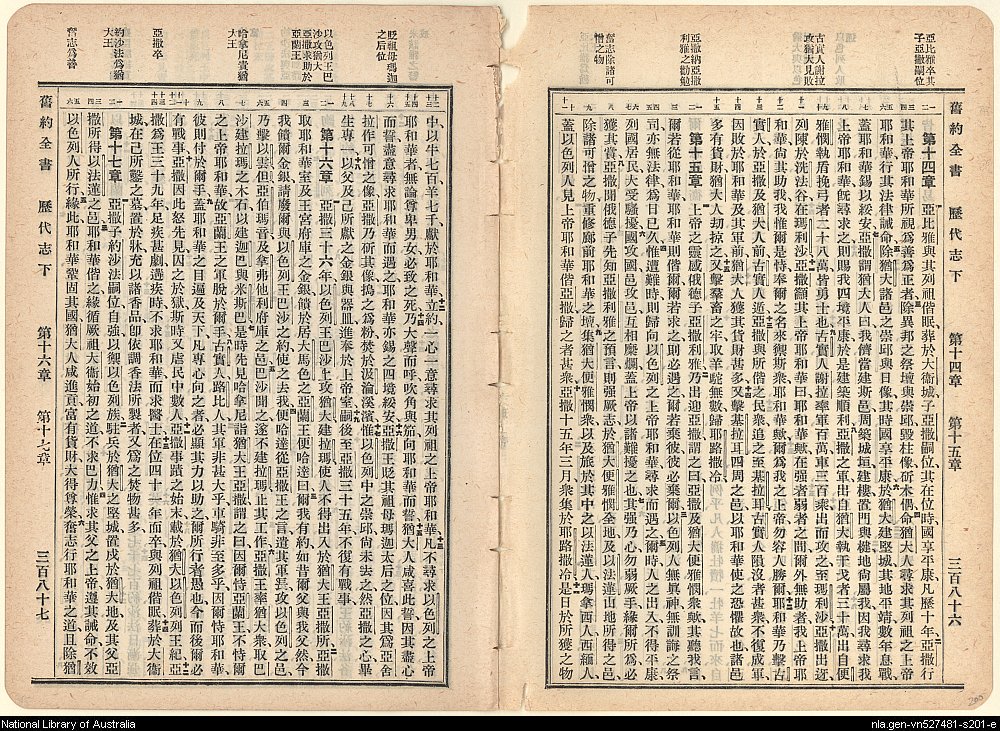 亞比雅卒其
子亞撒嗣位
古實人謝拉
攻猶大見敗
亞撒納亞撒
利雅之勸勉
奮志除諸可
憎之物
舊約全書 歷代志下 第十四章 第十五章 三百八十六
第十四章 亞比雅與其列祖偕眠葬於大衛城子亞撒嗣位其在位時國享平康凡歷十年亞撒行
其上帝耶和華所視爲善爲正者除異邦之祭壇與崇邱毀柱像斫木偶命猶大人尋求其列祖之上帝
耶和華行其法律誡命除猶大諸邑之崇邱與日像其時國享平康於猶大建堅城其地平靖數年息戰
蓋耶和華錫以綏安亞撒謂猶大人曰我儕當建斯邑周築城垣建樓置門與楗地尙屬我因我尋求我
上帝耶和華旣尋求之則賜我四境平康於是建築順利亞撒之軍出自猶大執干戈者三十萬出自便
雅憫執盾挽弓者二十八萬皆勇士也古實人謝拉率軍百萬車三百乘出而攻之至瑪利沙亞撒出迓
列陳於洗法谷在瑪利沙亞撒籲其上帝耶和華曰耶和華歟在强者弱者之間爾外無助者我上帝耶
和華尚其助我我惟爾是恃奉爾之名來禦斯衆耶和華歟爾爲我之上帝勿容人勝爾耶和華乃擊古
實人於亞撒及猶大人前古實人遁亞撒與所偕之民衆追之至基拉耳古實人隕沒者甚衆不復成軍
因敗於耶和華及其軍前猶大人獲其貨財甚多又擊基拉耳四周之邑以耶和華使之恐懼故也諸邑
多有貨財猶大人却掠之又擊羣畜之牢取羊駝無數歸耶路撒冷
第十五章 上帝之靈感俄德子亞撒利雅乃出迎亞撒謂之曰亞撒及猶大便雅憫衆歟其聽我言
爾若從耶和華則必偕爾爾若求之則必遇之爾若棄彼彼必棄爾以色列人無眞神無訓誨之祭
司亦無法律爲日已久惟遭難時則歸向以色列之上帝耶和華尋求而遇之爾時人之出入不得平康
國居民大受騷擾國攻國邑攻邑互相糜爛蓋上帝以諸難擾之也其强乃心勿弱厥手緣爾所爲必
獲其賞亞撒聞俄德子先知亞撒利雅之預言則强厥志於猶大便雅憫全地及以法蓮山地所得之邑
除諸可憎之物重修廊前耶和華之壇集猶大便雅憫衆以及旅於其中之以法蓮人瑪拿西人西緬人
蓋以色列人見上帝耶和華偕亞撒歸之者甚衆亞撒十五年三月衆集於耶路撒冷是日於所獲之物
貶祖母瑪迦
之后位
以色列王巴
沙攻猶大
亞撒求助於
亞蘭王
哈拿尼責猶
大王
亞撒卒
約沙法爲猶
大王
奮志爲善
中以牛七百羊七千獻於耶和華立約一心一意尋求其列祖之上帝耶和華凡不尋求以色列之上帝
耶和華者無論尊卑男女必致之死乃大聲而呼吹角與笳向耶和華而誓猶大人咸喜此誓因其盡心
而誓盡意尋求耶和華而遇之耶和華亦錫之四境綏安亞撒王貶其祖母瑪迦太后之位因其爲亞舍
拉作可憎之像亞撒乃斫其像搗之爲粉焚於汲淪溪濱惟以色列中之崇邱尙未去之然亞撒之心畢
生專一以父及己所獻之金銀與器皿進奉於上帝室嗣後至亞撒三十五年不復有戰事
第十六章 亞撒三十六年以色列王巴沙上攻猶大建拉瑪使人不得出入於猶大王亞撒所亞撒
取耶和華室及王宮府庫之金銀饋於居大馬色之亞蘭王便哈達曰我與爾有約如昔爾父與我父然今
我饋爾金銀請廢爾與以色列王巴沙之約使之去我便哈達從亞撒王之言遣其軍長攻以色列之邑
乃擊以雲但亞伯瑪音及拿弗他利府庫之邑巴沙聞之遂不建拉瑪止其工作亞撒王率猶大衆取巴
沙建拉瑪之木石以建迦巴與米斯巴是時先見哈拿尼詣猶大王亞撒謂之曰因爾恃亞蘭王不恃爾
之上帝耶和華故亞蘭王之軍脫於爾手古實人路比人其軍非甚大乎車騎非至多乎因爾恃耶和華
彼則付於爾手蓋耶和華之目遍及天下凡專心向之者必顯其力以助之爾所行者愚也今而後爾必
有戰事亞撒因此怒先見囚之於獄斯時又虐民中數人亞撒事蹟之始末載於猶大以色列列王紀亞
撒爲王三十九年足疾甚劇遘疾時不求耶和華而求醫士在位四十一年而卒與列祖偕眠葬於大衛
城在己所鑿之墓置於牀充以諸香品卽依調香法所製者又爲之焚物甚多
第十七章 亞撒子約沙法嗣位自强以禦以色列族駐兵於猶大之堅城置戍於猶大地及其父亞
撒所得以法蓮之邑耶和華偕之緣循厥祖大衛始初之道不求巴力惟求其父之上帝遵其誡命不效
以色列人所行緣此耶和華鞏固其國猶大人咸進貢富有貨財大得尊榮奮志行耶和華之道且除猶
舊約全書 歷代志下 第十六章 第十七章 三百八十七
National Library of Australia
nla.gen-vn527481-s201-e